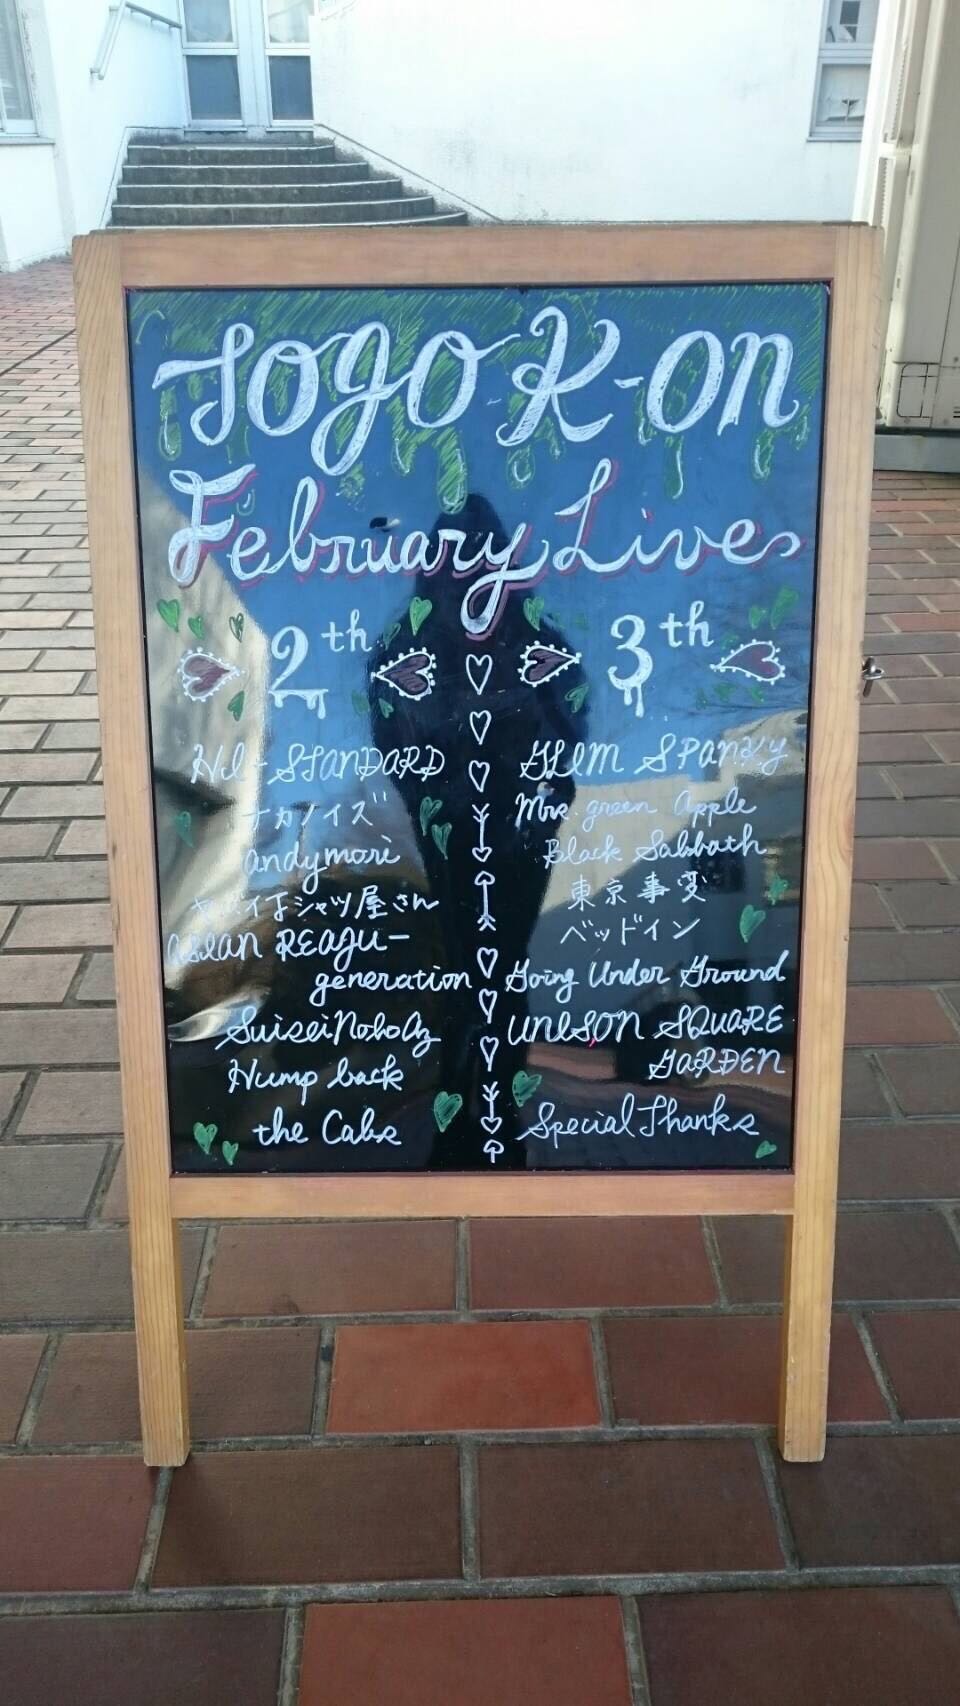 Jogo K-on
February Lives
2th
Hi-STANDARD
ナカノイズ
andymori
ヤバイTシャツ屋さん
ASIAN REAGU-
generation
SuiseiNoboAz
Hump back
the Cabs
3th
GLIM SPANKY
Mrs. green Apple
Black Sabbath
東京事変
ベッドイン
Going Under Ground
UNISON SQUARE
GARDEN
Special Thanks